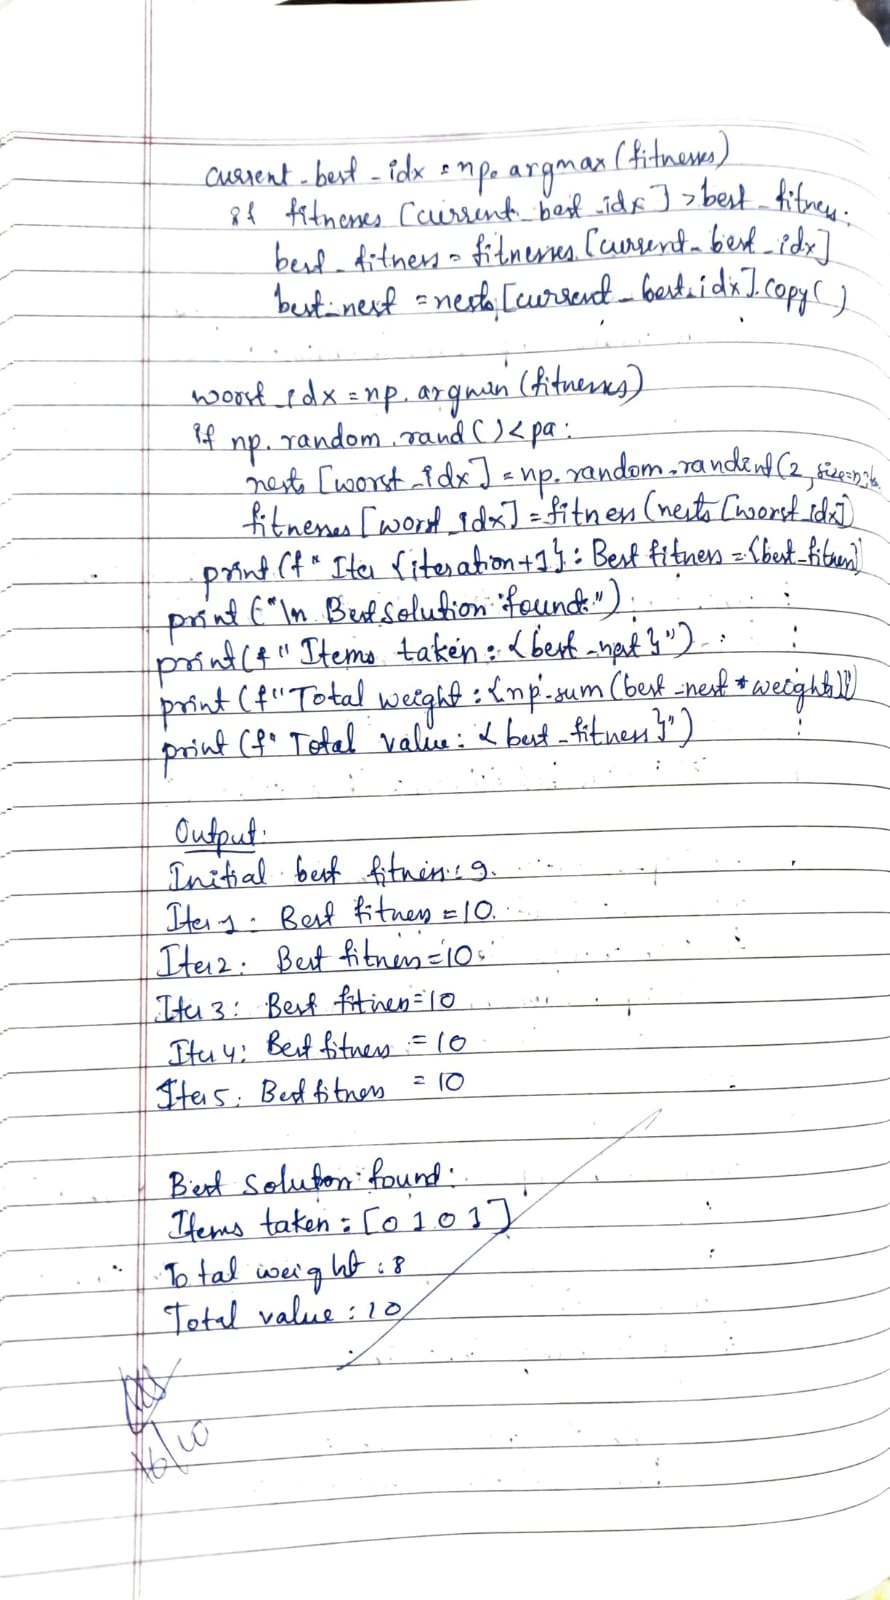 current_best_idx = np.argmax(fitnesses)
if fitnesses[current_best_idx] > best_fitness:
best_fitness = fitnesses[current_best_idx]
best_nest = nests[current_best_idx].copy()
worst_idx = np.argmin(fitnesses)
if np.random.rand() < pa:
nests[worst_idx] = np.random.randint(2, size=
fitnesses[worst_idx] = fitness(nests[worst_idx])
print(f"Iter {iteration+1}: Best fitness = {best_fitness}
print("\n Best solution found:")
print(f"Items taken: {best_nest}")
print(f"Total weight: {np.sum(best_nest * weights)}")
print(f"Total value: {best_fitness}")
Output:
Initial best fitness: 9.
Iter 1: Best fitness = 10.
Iter 2: Best fitness = 10.
Iter 3: Best fitness = 10
Iter 4: Best fitness = 10
Iter 5: Best fitness = 10
Best solution found:
Items taken: [0 1 0 1]
Total weight: 8
Total value: 10
16/10